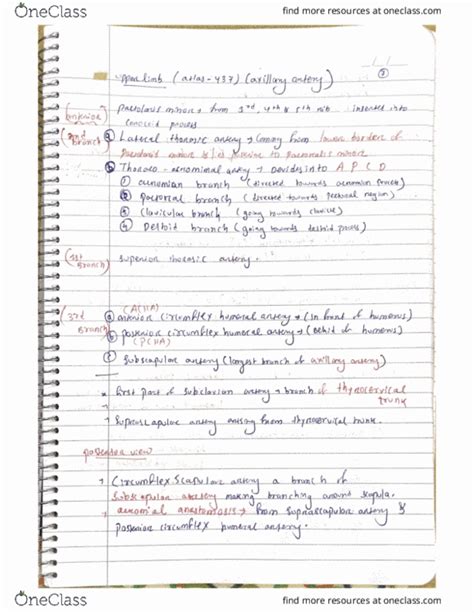 OneClass
find more resources at oneclass.com
upper limb (atlas-437) (axillary artery)
(anterior) pectoralis minor → from 3rd, 4th & 5th rib inserted into
coracoid process
(2nd branch) ⓐ Lateral thoracic artery → coming from lower border of
pectoralis minor
ⓑ Thoraco-acromial artery → devides into A P C D
① acromian branch (directed towards acromion process)
② pectoral branch (directed towards pectoral region)
③ clavicular branch (going towards clavicle)
④ Deltoid branch (going towards deltoid process)
(1st Branch) superior thoracic artery.
(ACHA)
(3rd Branch) ⓐ anterior circumflex humeral artery → (in front of humerus)
ⓑ posterior circumflex humeral artery → (behid of humerus)
(PCHA)
subscapular artery (largest branch of axillary artery)
first part of subclavian artery → branch of thyrocervical
trunk
suprascapular artery arising from thyrocervical trunk.
posterior view
Circumflex scapular artery a branch of
subscapular artery making branching around scapula.
acromial anastomosis → from suprascapular artery &
posterior circumflex humeral artery.
OneClass
find more resources at oneclass.com